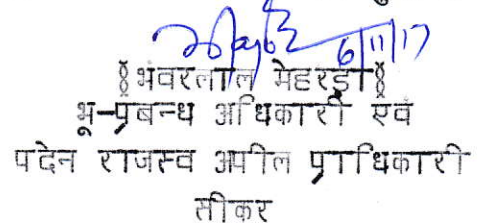 6/11/17
§भंवरलाल मेहरड़ा§
भू-प्रबन्ध अधिकारी एवं
पदेन राजस्व अपील प्राधिकारी
सीकर